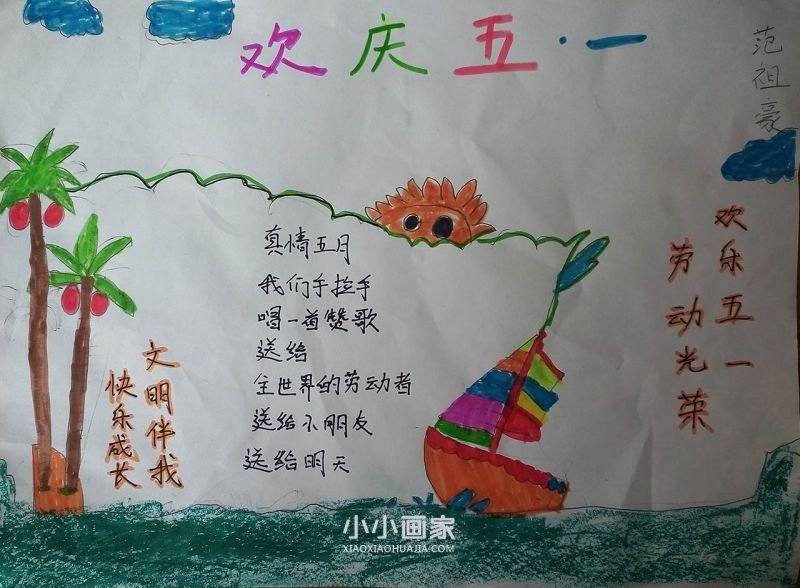 欢庆五·一
范祖豪
真情五月
我们手拉手
唱一首赞歌
送给
全世界的劳动者
送给小朋友
送给明天
欢乐五一
劳动光荣
文明伴我
快乐成长
小小画家
XIAOXIAOHUAJIA.COM